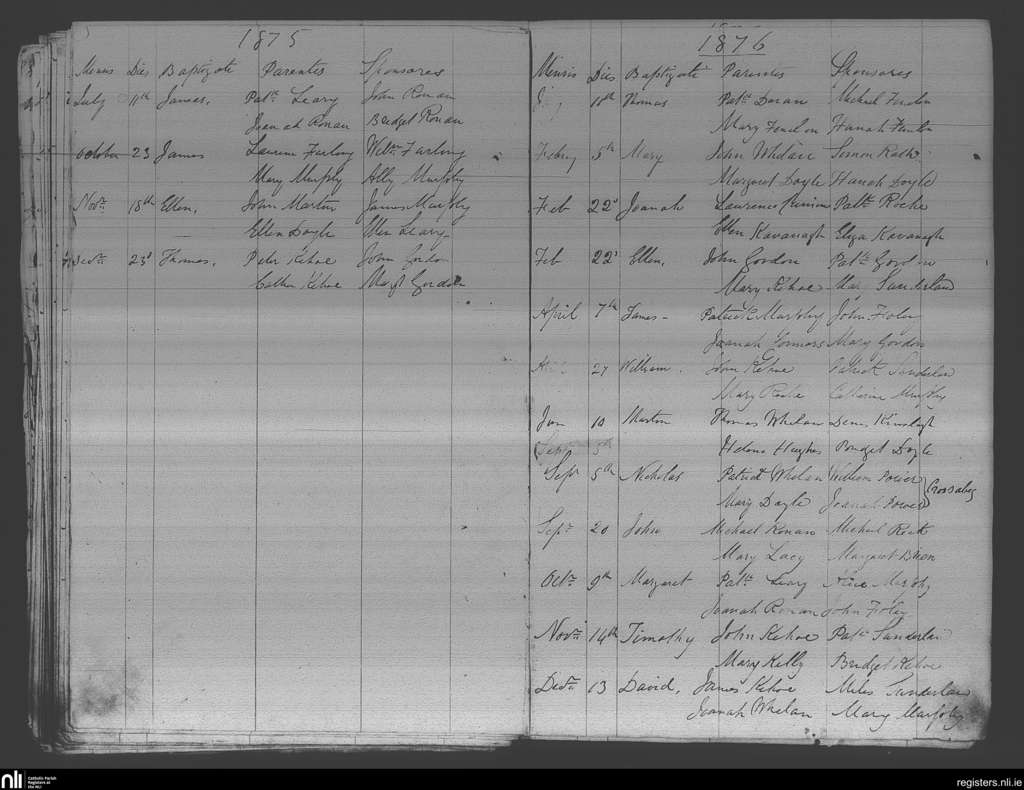 1875
Mensis Dies Baptizati Parentes Sponsores
July 11th James, Patk Leary John Ronan
Joanah Ronan Bridget Ronan
October 23 James Laurence Farlong Willm Farlong
Mary Murphy Ally Murphy
Novr 18th Ellen, John Martin James Murphy
Ellen Doyle Ellen Leary
Decr 23d Thomas, Peter Kehoe John Gordon
Cathn Kehoe Margt Gordon
1876
Mensis Dies Baptizati Parentes Sponsores
11th Thomas Patk Doran Michael
Mary Fenelon Hanah
Febry 5th Mary John Whelan Simon
Margaret Doyle Hanah Doyle
Feb 22d Joanah Laurence Patk Roche
Ellen Kavanagh Eliza Kavanagh
Feb 22d Ellen, John Gordon Patk Gordon
Mary Kehoe Sunderlan
April 7th James Patrick Murphy John Foley
Joanah Mary Gordon
27 William. John Kehoe Patrick Sunderlan
Mary Roche Catherine Murphy
Jun 10 Martin Thomas Whelan Denis
(Sept 5th Helena Hughes Bridget Doyle
Sept 5th Nicholas Patrick Whelan William Power
Crossabeg
Mary Doyle Joanah Power
Sept 20 John Michael Ronan Michael
Mary Lacy Margaret
Octr 9th Margaret Patk Leary Murphy
Joanah Ronan John Foley
Novr 14th Timothy John Kehoe Patk Sunderlan
Mary Kelly Bridget Kehoe
Decr 13 David, James Kehoe Miles Sunderlan
Joanah Whelan Mary Murphy
nli Catholic Parish
Registers at
the NLI
registers.nli.ie